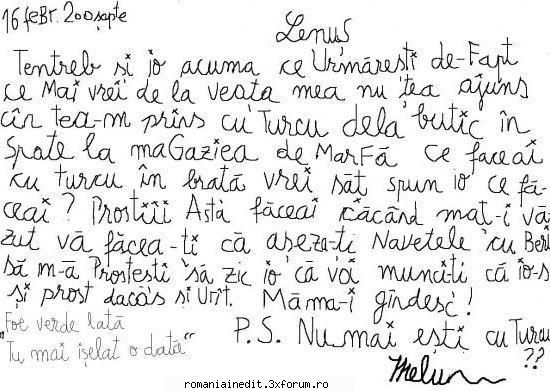 16 feBr. 200șapte
Lenuș
Tentreb și io acuma ce Urmărești de-Fapt
ce Mai vrei de la veata mea nu tea ajuns
cîn tea-m prins cu Turcu dela butic în
Spate la maGaziea de MarFă ce faceai
cu turcu în brată vrei săt spun io ce fă-
ceai? Prostiii Astă făceai căcând mat-i vă
zut vă făcea-ti că aseza-ti Navetele cu Beri
să m-ă Prostesti să zic io că voi munciti că io-s
și prost dacă's si Urît. Măma-i gîndesc!
Foe verde lată
"Tu mai îșelat o dată"
P.S. Nu mai ești cu Turcu
??
romaniainedit.3xforum.ro